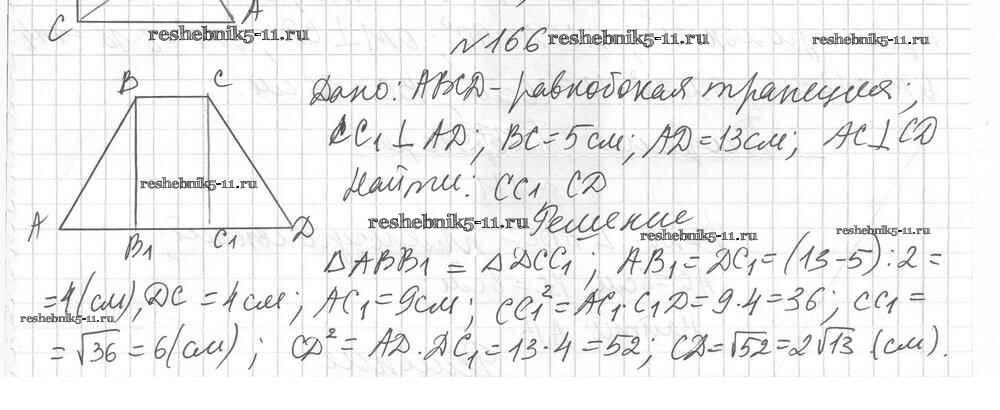 C A
reshebnik5-11.ru
№166 reshebnik5-11.ru reshebnik5-11.ru
B C
Дано: ABCD - равнобокая трапеция;
CC₁ ⊥ AD; BC = 5 см; AD = 13 см; AC ⊥ CD
reshebnik5-11.ru
Найти: CC₁ CD
reshebnik5-11.ru Решение
reshebnik5-11.ru reshebnik5-11.ru
A B₁ C₁ D
△ABB₁ = △DCC₁; AB₁ = DC₁ = (13-5):2 =
=4(см), DC = 4 см; AC₁ = 9 см; CC₁² = AC₁·C₁D = 9·4 = 36; CC₁ =
reshebnik5-11.ru
= √36 = 6(см); CD² = AD·DC₁ = 13·4 = 52; CD = √52 = 2√13 (см).